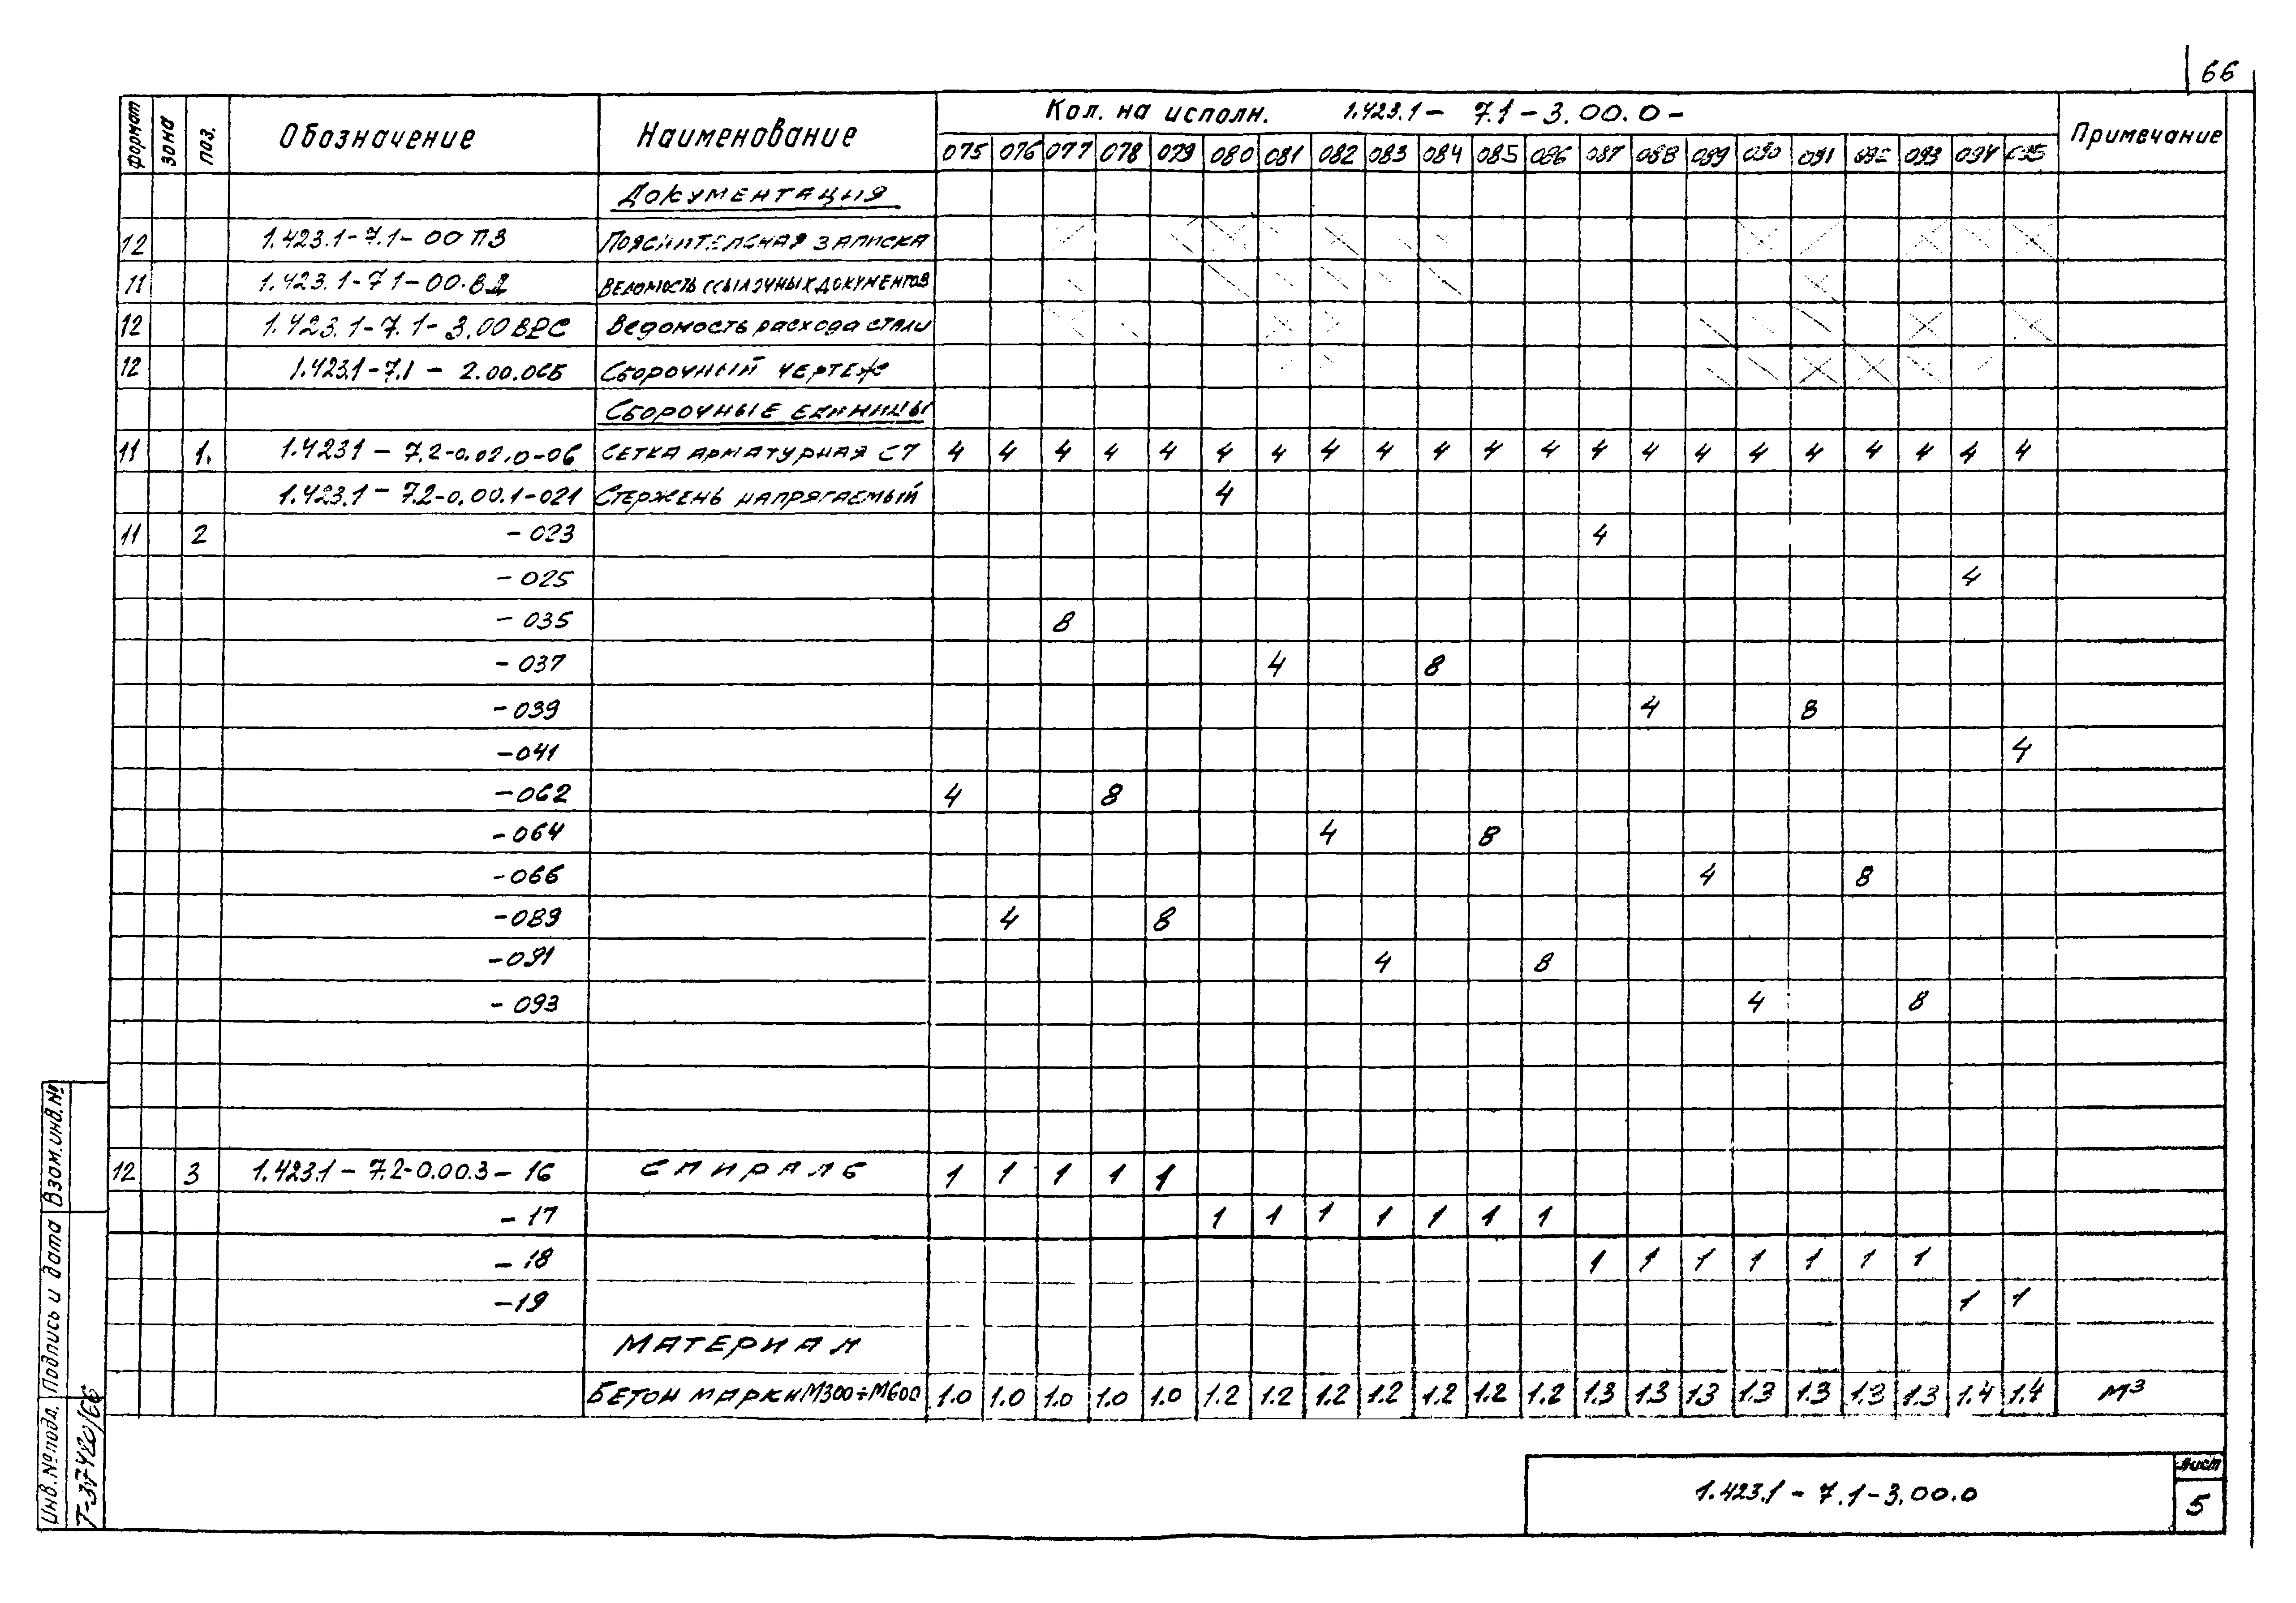 66
формат зона поз. Обозначение Наименование Кол. на исполн. 1.423.1 – 7.1 – 3.00.0 – Примечание
075 076 077 078 079 080 081 082 083 084 085 086 087 088 089 090 091 092 093 094 095
Документация
12 1.423.1-7.1-00 ПЗ Пояснительная записка
11 1.423.1-7.1-00.ВД Ведомость ссылочных документов
12 1.423.1-7.1-3.00ВРС Ведомость расхода стали
12 1.423.1-7.1 – 2.00.0СБ Сборочный чертеж
Сборочные единицы
11 1. 1.423.1 – 7.2-0.02.0-06 Сетка арматурная С7 4 4 4 4 4 4 4 4 4 4 4 4 4 4 4 4 4 4 4 4 4
1.423.1 – 7.2-0.00.1-021 Стержень напрягаемый 4
11 2 – 023 4
– 025 4
– 035 8
– 037 4 8
– 039 4 8
– 041 4
– 062 4 8
– 064 4 8
– 066 4 8
– 089 4 8
– 091 4 8
– 093 4 8
12 3 1.423.1 – 7.2-0.00.3 – 16 Спираль 1 1 1 1 1
– 17 1 1 1 1 1 1 1
– 18 1 1 1 1 1 1 1
– 19 1 1
Материал
Бетон марки М300÷М600 1.0 1.0 1.0 1.0 1.0 1.2 1.2 1.2 1.2 1.2 1.2 1.2 1.3 1.3 1.3 1.3 1.3 1.3 1.3 1.4 1.4 м³
Взам.инв.№
Подпись и дата
Инв.№подл.
Т-37420/66
1.423.1 – 7.1-3.00.0
лист
5